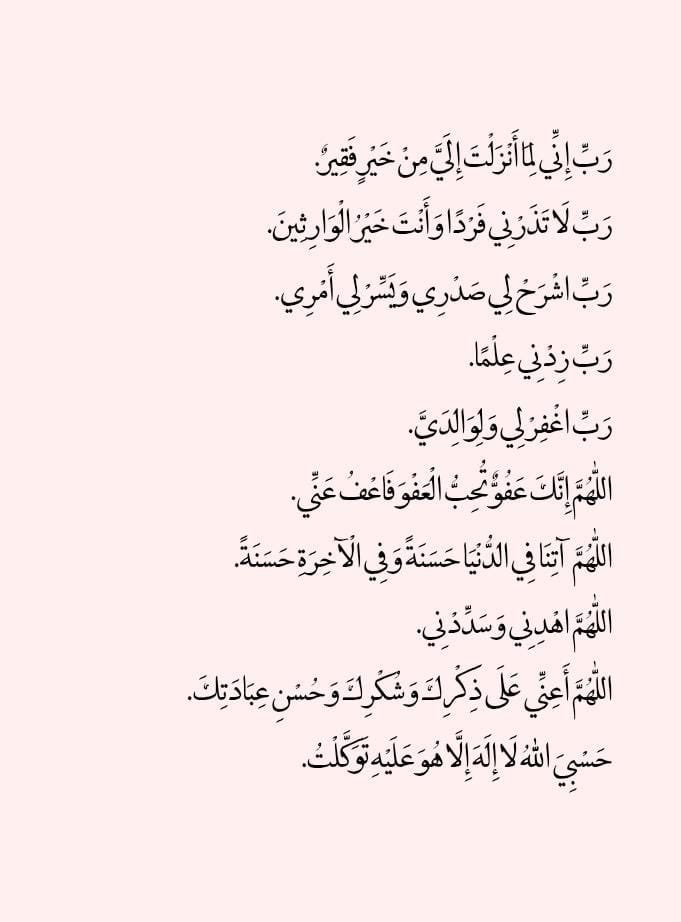 رَبِّ إِنِّي لِمَا أَنْزَلْتَ إِلَيَّ مِنْ خَيْرٍ فَقِيرٌ.
رَبِّ لَا تَذَرْنِي فَرْدًا وَأَنْتَ خَيْرُ الْوَارِثِينَ.
رَبِّ اشْرَحْ لِي صَدْرِي وَيَسِّرْ لِي أَمْرِي.
رَبِّ زِدْنِي عِلْمًا.
رَبِّ اغْفِرْ لِي وَلِوَالِدَيَّ.
اللّٰهُمَّ إِنَّكَ عَفُوٌّ تُحِبُّ الْعَفْوَ فَاعْفُ عَنِّي.
اللّٰهُمَّ آتِنَا فِي الدُّنْيَا حَسَنَةً وَفِي الْآخِرَةِ حَسَنَةً.
اللّٰهُمَّ اهْدِنِي وَسَدِّدْنِي.
اللّٰهُمَّ أَعِنِّي عَلَى ذِكْرِكَ وَشُكْرِكَ وَحُسْنِ عِبَادَتِكَ.
حَسْبِيَ اللّٰهُ لَا إِلَهَ إِلَّا هُوَ عَلَيْهِ تَوَكَّلْتُ.